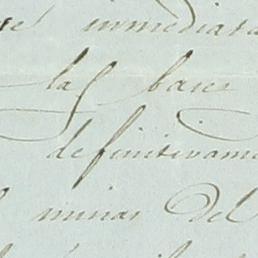 inmediata
las bases
definitivame
minas del